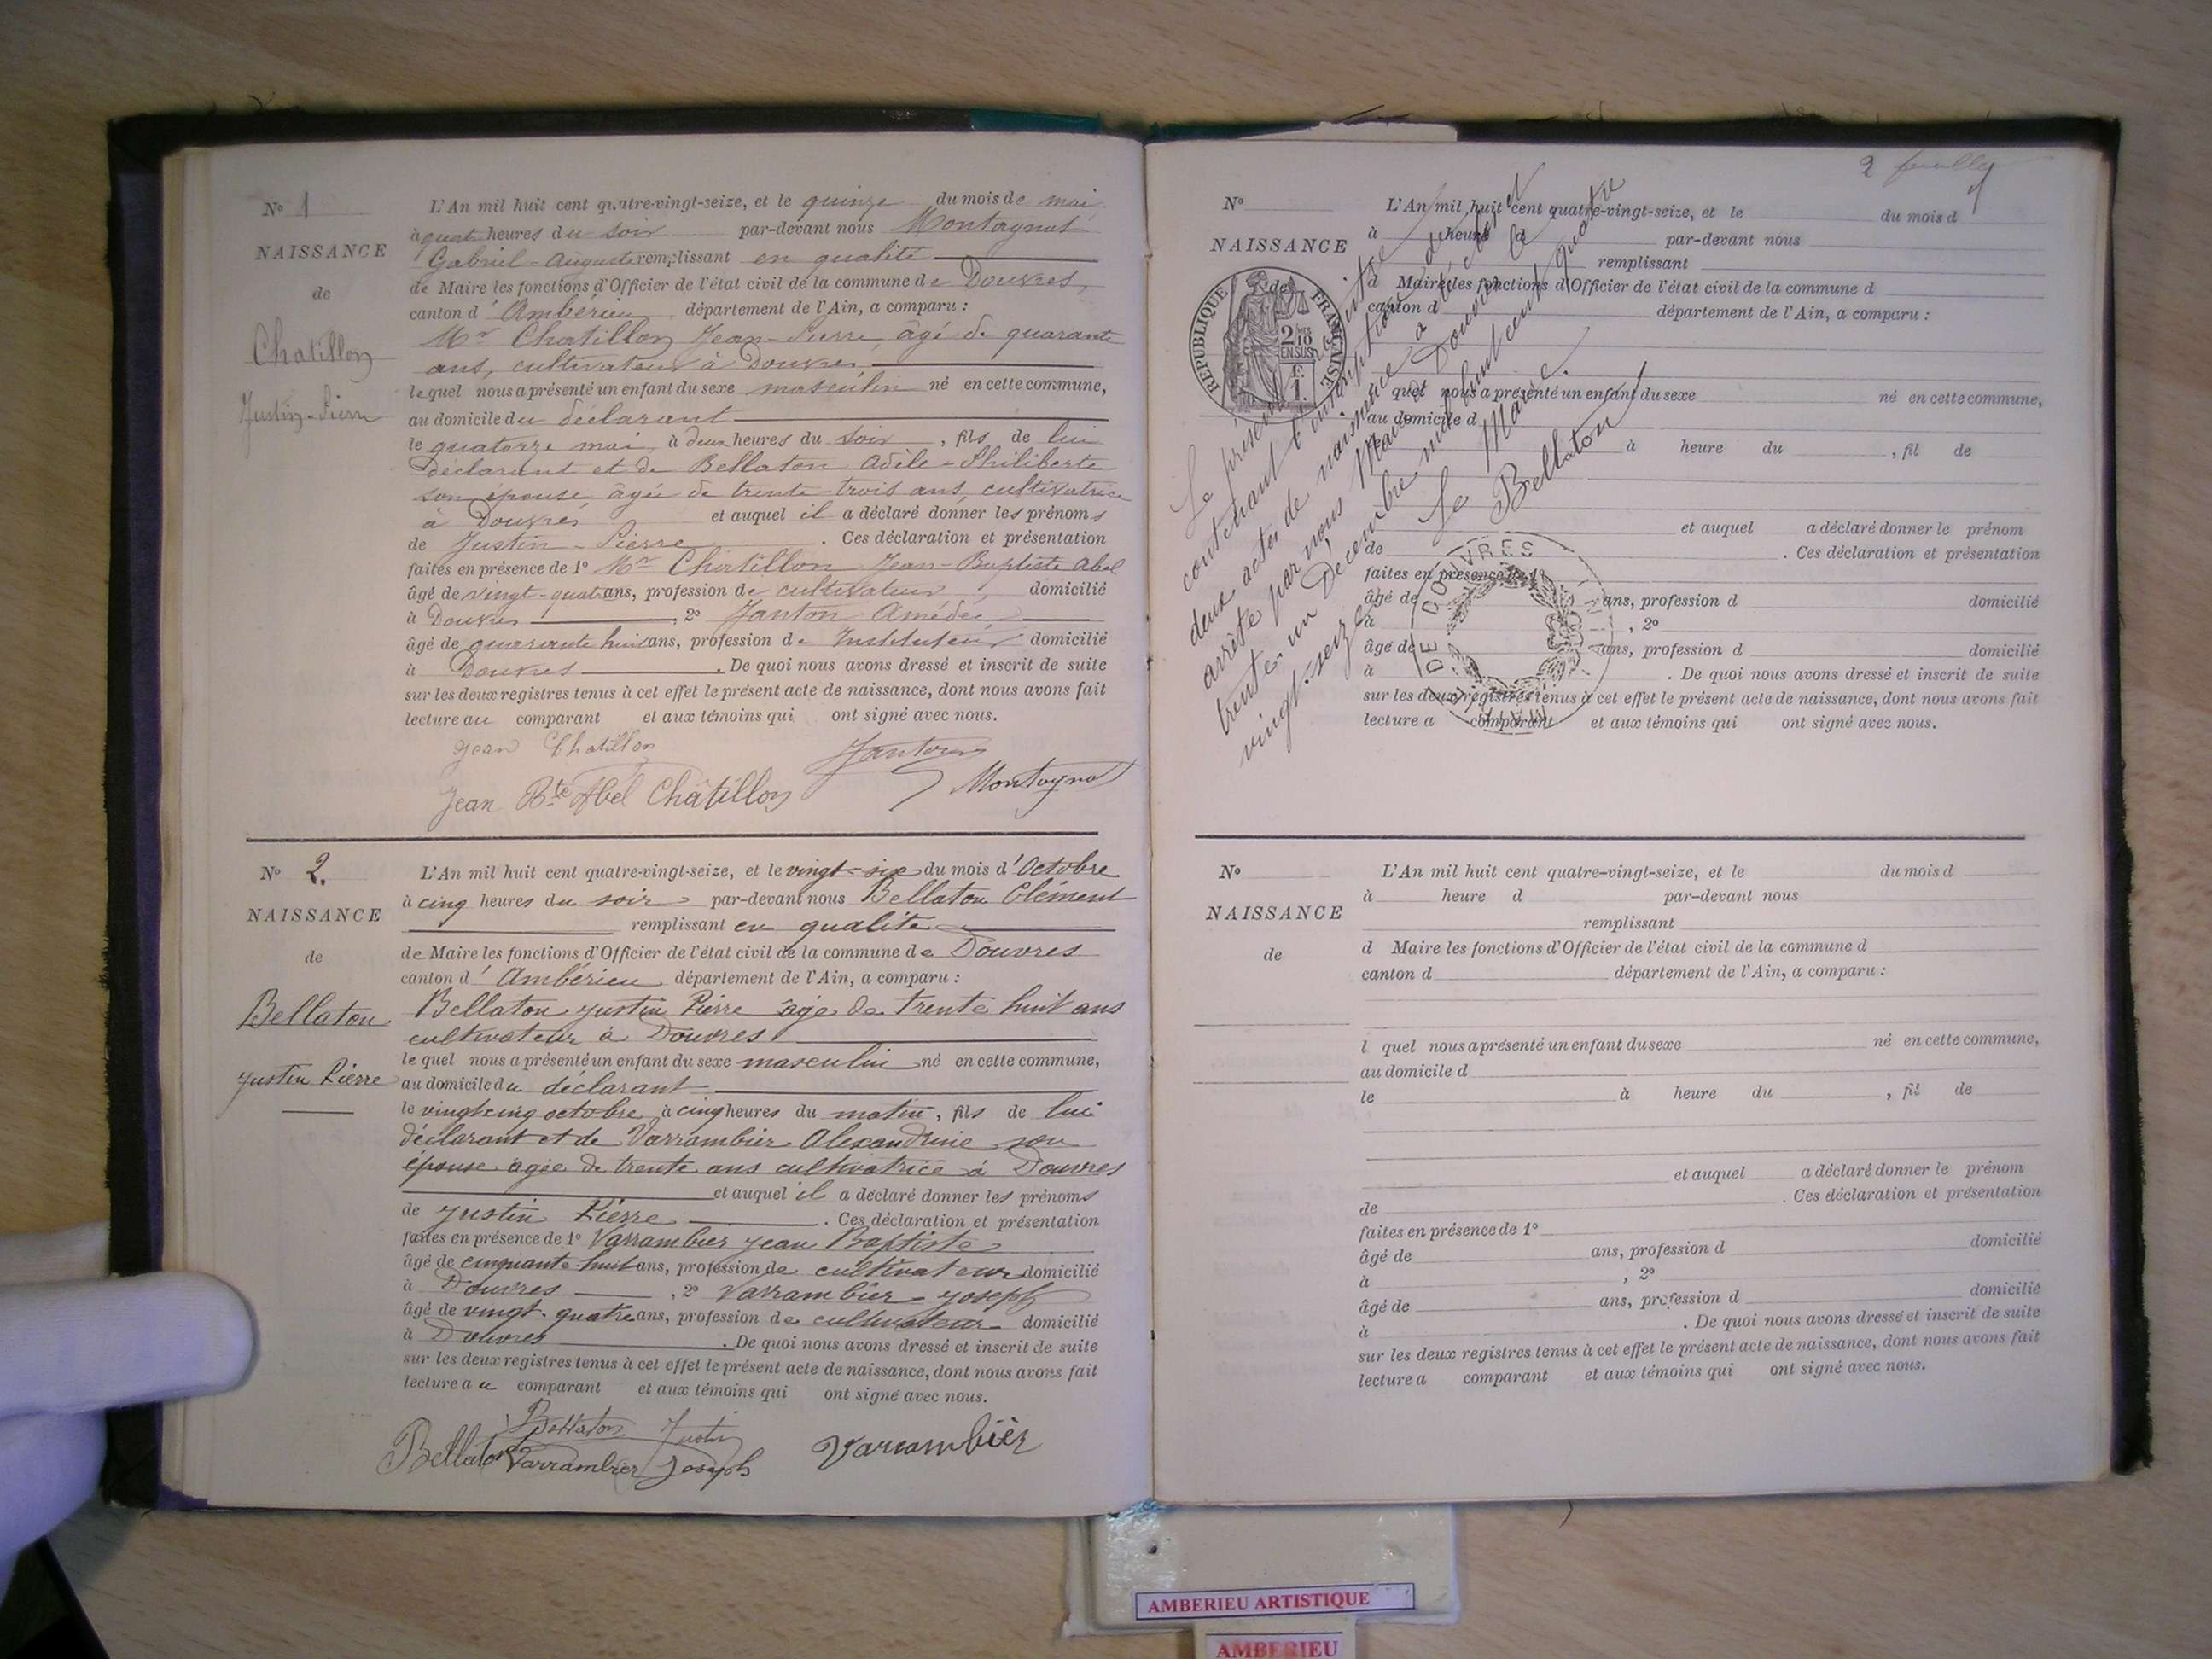 Nº 1
NAISSANCE
de
Chatillon
Justin-Pierre
L'An mil huit cent quatre-vingt-seize, et le quinze du mois de mai
à quatre heures du soir par-devant nous Montagnat
Gabriel-Auguste remplissant en qualité
de Maire les fonctions d'Officier de l'état civil de la commune de Douvres,
canton d'Ambérieu département de l'Ain, a comparu :
Mr Chatillon Jean-Pierre, âgé de quarante
ans, cultivateur à Douvres,
lequel nous a présenté un enfant du sexe masculin né en cette commune,
au domicile du déclarant
le quatorze mai à deux heures du soir, fils de lui
déclarant et de Bellaton Adèle-Philiberte
son épouse âgée de trente-trois ans, cultivatrice
à Douvres et auquel il a déclaré donner les prénoms
de Justin-Pierre. Ces déclaration et présentation
faites en présence de 1º Mr Chatillon Jean-Baptiste Abel
âgé de vingt-quatre ans, profession de cultivateur, domicilié
à Douvres, 2º Janton Amédée,
âgé de quarante huit ans, profession de Instituteur domicilié
à Douvres. De quoi nous avons dressé et inscrit de suite
sur les deux registres tenus à cet effet le présent acte de naissance, dont nous avons fait
lecture au comparant et aux témoins qui ont signé avec nous.
Jean Chatillon Janton
Jean Bte Abel Châtillon Montagnat
Nº 2.
NAISSANCE
de
Bellaton
Justin Pierre
L'An mil huit cent quatre-vingt-seize, et le vingt-six du mois d'Octobre
à cinq heures du soir par-devant nous Bellaton Clément
remplissant en qualité
de Maire les fonctions d'Officier de l'état civil de la commune de Douvres
canton d'Ambérieu département de l'Ain, a comparu :
Bellaton Justin Pierre âgé de trente huit ans
cultivateur à Douvres
lequel nous a présenté un enfant du sexe masculin né en cette commune,
au domicile du déclarant
le vingt cinq octobre à cinq heures du matin, fils de lui
déclarant et de Varrambier Alexandrine son
épouse âgée de trente ans cultivatrice à Douvres
et auquel il a déclaré donner les prénoms
de Justin Pierre. Ces déclaration et présentation
faites en présence de 1º Varrambier Jean Baptiste
âgé de cinquante-huit ans, profession de cultivateur domicilié
à Douvres, 2º Varrambier Joseph
âgé de vingt-quatre ans, profession de cultivateur domicilié
à Douvres. De quoi nous avons dressé et inscrit de suite
sur les deux registres tenus à cet effet le présent acte de naissance, dont nous avons fait
lecture au comparant et aux témoins qui ont signé avec nous.
Bellaton Justin
Bellaton Varrambier Joseph Varrambier
2
Nº
NAISSANCE
de
RÉPUBLIQUE FRANÇAISE
2/10 EN SUS
L'An mil huit cent quatre-vingt-seize, et le du mois d
à heure d par-devant nous
remplissant
d Maire les fonctions d'Officier de l'état civil de la commune d
canton d département de l'Ain, a comparu :
quel nous a présenté un enfant du sexe né en cette commune,
au domicile d
à heure du , fil de
et auquel a déclaré donner le prénom
de . Ces déclaration et présentation
faites en présence de 1º
âgé de ans, profession d domicilié
à , 2º
âgé de ans, profession d domicilié
à . De quoi nous avons dressé et inscrit de suite
sur les deux registres tenus à cet effet le présent acte de naissance, dont nous avons fait
lecture a comparant et aux témoins qui ont signé avec nous.
Le présent
contenant
deux actes de naissance a été clos et
arrêté par nous Maire de Douvres le
trente-un Décembre mil huit cent quatre
vingt-seize
Le Maire.
Bellaton
DE DOUVRES
Nº
NAISSANCE
de
L'An mil huit cent quatre-vingt-seize, et le du mois d
à heure d par-devant nous
remplissant
d Maire les fonctions d'Officier de l'état civil de la commune d
canton d département de l'Ain, a comparu :
l quel nous a présenté un enfant du sexe né en cette commune,
au domicile d
le à heure du , fil de
et auquel a déclaré donner le prénom
de . Ces déclaration et présentation
faites en présence de 1º
âgé de ans, profession d domicilié
à , 2º
âgé de ans, profession d domicilié
à . De quoi nous avons dressé et inscrit de suite
sur les deux registres tenus à cet effet le présent acte de naissance, dont nous avons fait
lecture a comparant et aux témoins qui ont signé avec nous.
AMBERIEU ARTISTIQUE
AMBERIEU